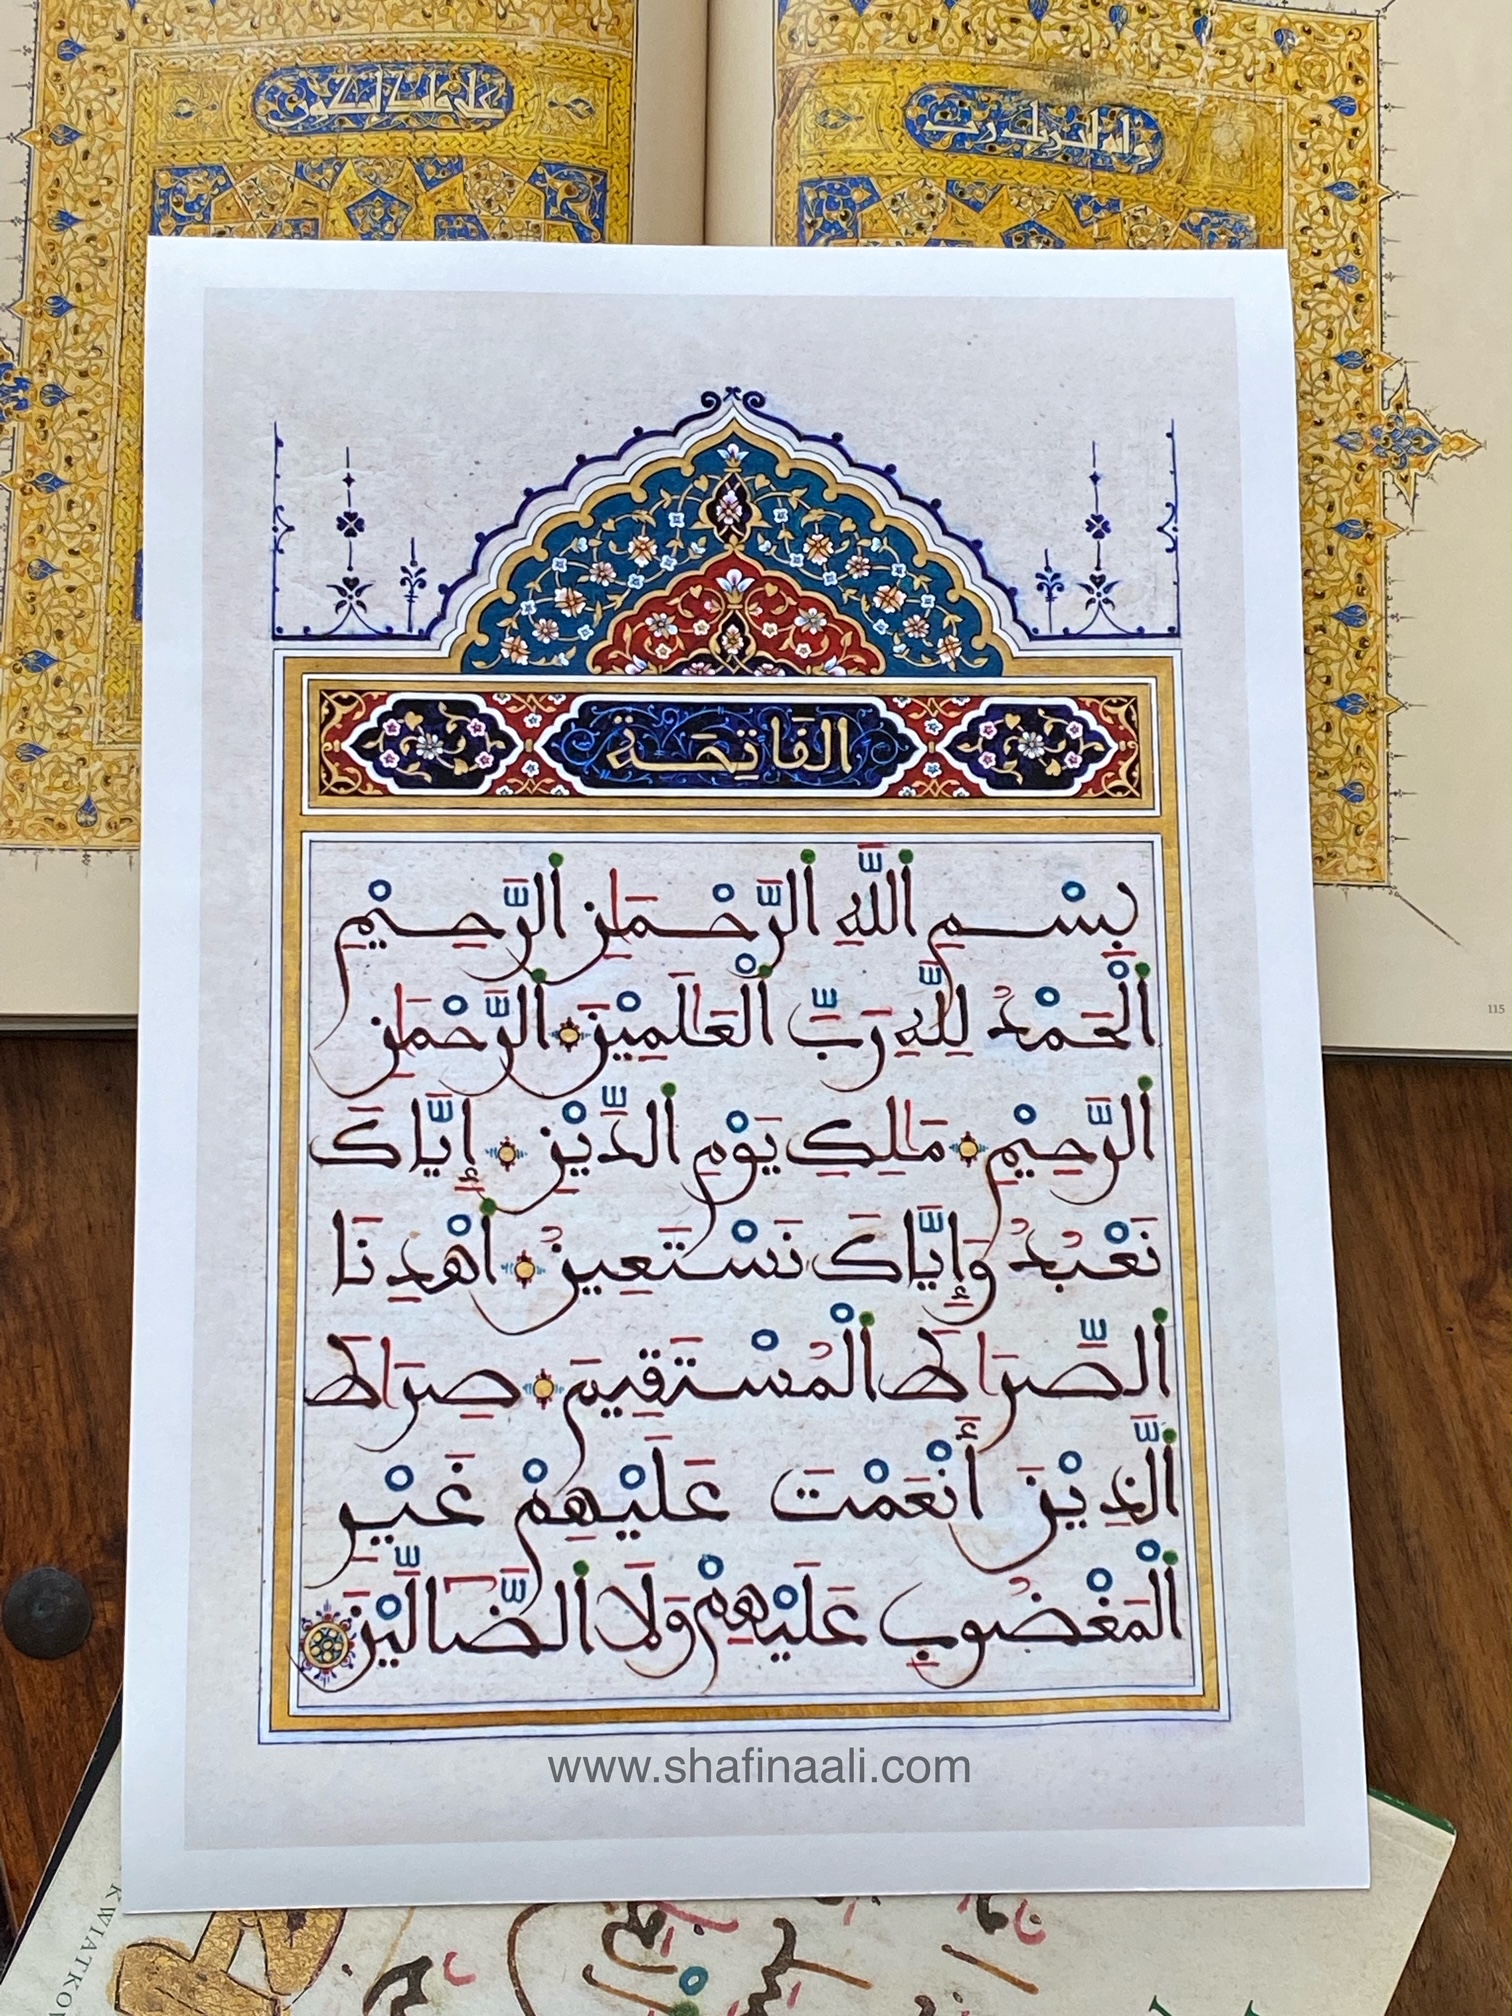 الفَاتِحَة
بِسْمِ ٱللَّهِ ٱلرَّحْمَٰنِ ٱلرَّحِيمِ
ٱلْحَمْدُ لِلَّهِ رَبِّ ٱلْعَٰلَمِيْنَ ٱلرَّحْمَٰنِ
ٱلرَّحِيْمِ مَٰلِكِ يَوْمِ ٱلدِّيْنِ إِيَّاكَ
نَعْبُدُ وَإِيَّاكَ نَسْتَعِينُ ٱهْدِنَا
ٱلصِّرَٰطَ ٱلْمُسْتَقِيمَ صِرَٰطَ
ٱلَّذِيْنَ أَنْعَمْتَ عَلَيْهِمْ غَيْرِ
ٱلْمَغْضُوبِ عَلَيْهِمْ وَلَا ٱلضَّآلِّيْنَ
www.shafinaali.com
115